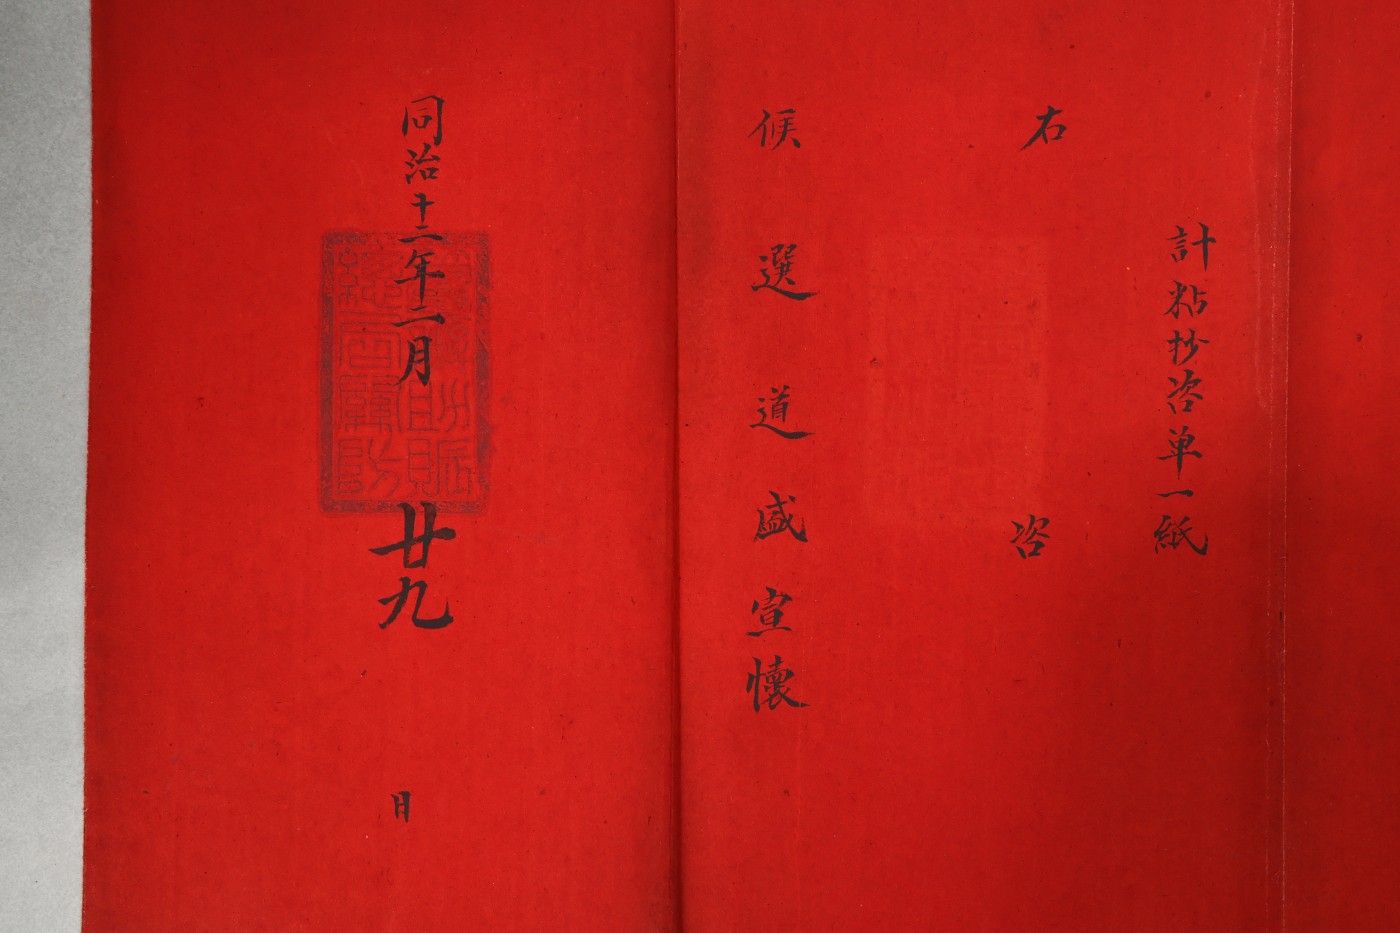 計粘抄咨单一紙
右咨
候選道盛宣懷
同治十二年十二月廿九日